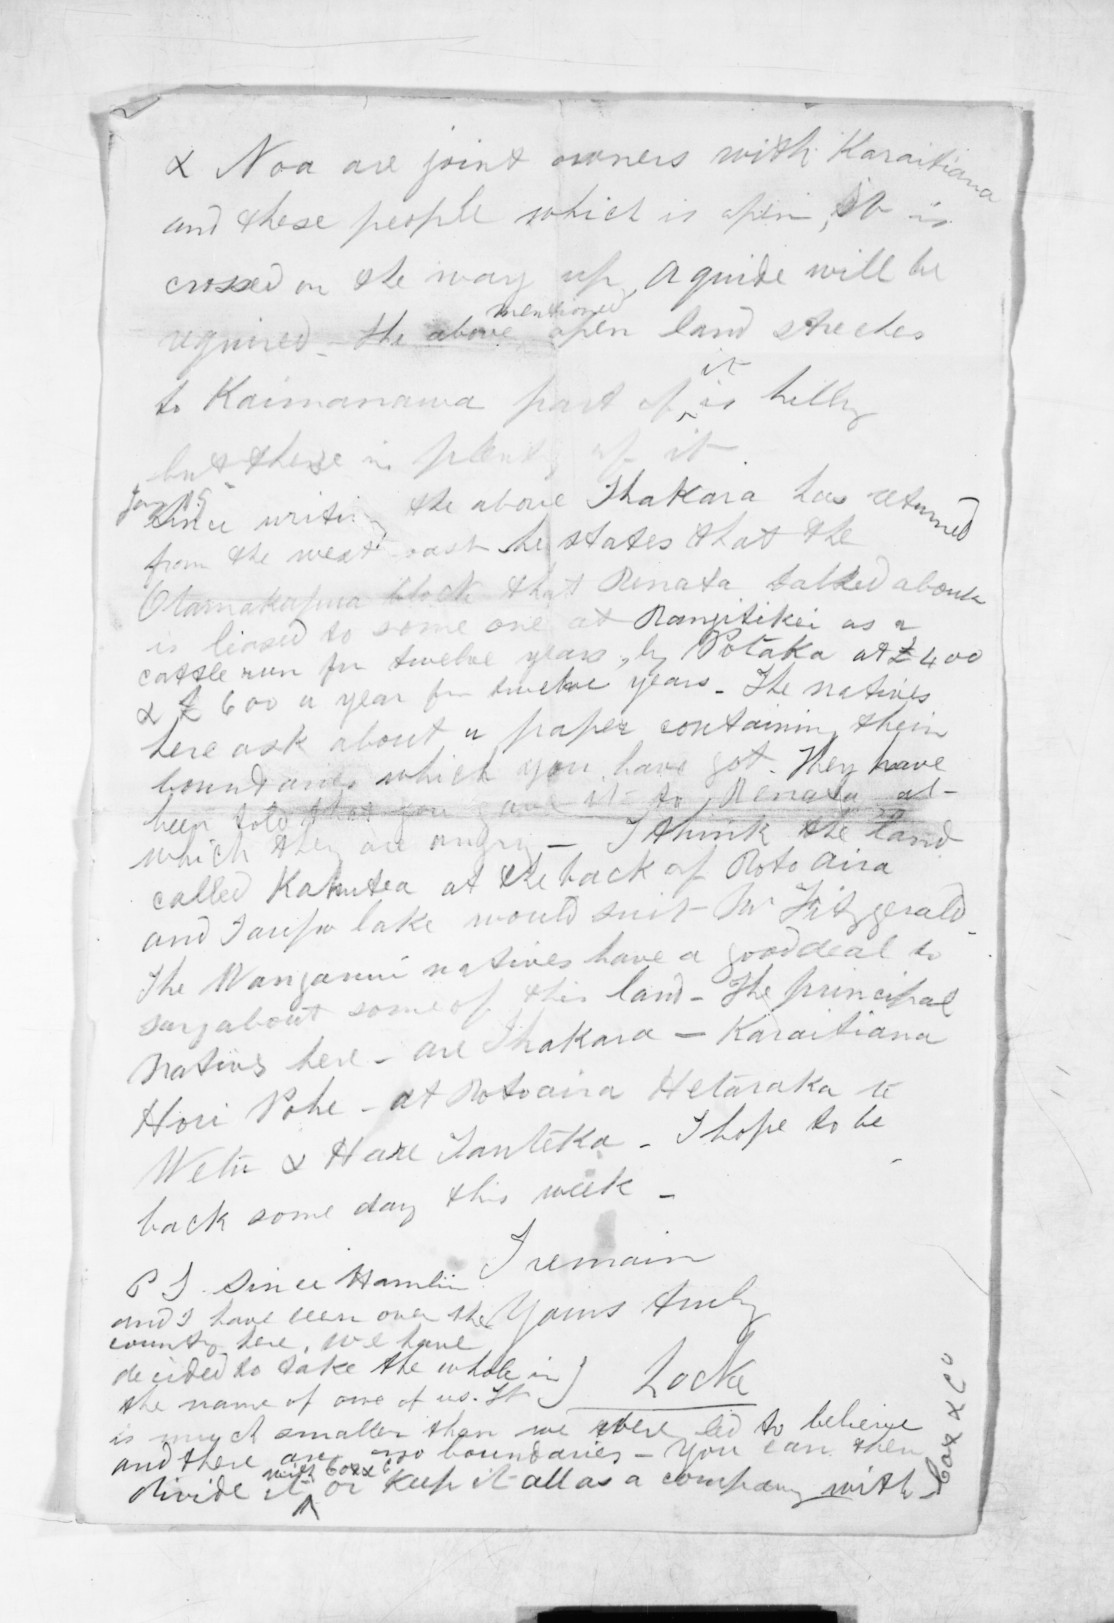 & Noa are joint owners with Karaitiana
and these people which is open, it is
crossed on the way up, a guide will be
required - the above mentioned open land streches
to Kaimanawa part of it is hilly
but there is plenty of it
Since writing the above Ihakara has returned
from the west coast he states that the
Otamakapua block that Renata talked about
is leased to some one at Rangitikei as a
cattle run for twelve years, by Potaka at £400
& £600 a year for twelve years - The natives
here ask about a paper containing their
boundaries which you have got. They have
been told that you gave it to Renata at
which they are angry - I think the land
called Kahutea at the back of Roto aira
and Taupo lake would suit Mr Fitzgerald -
The Wanganui natives have a good deal to
say about some of this land - The principal
natives here - are Ihakara - Karaitiana
Hori Pohe - at Rotoaira Hetaraka te
Wetu & Hare Tauteka - I hope to be
back some day this week -
I remain
Yours truly
S Locke
P S. Since Hamlin
and I have been over the
country here, we have
decided to take the whole in
the name of one of us. It
is much smaller than we were led to believe
and there are no boundaries - You can then
divide it with Cox & Co or keep it all as a company with
Cox & Co